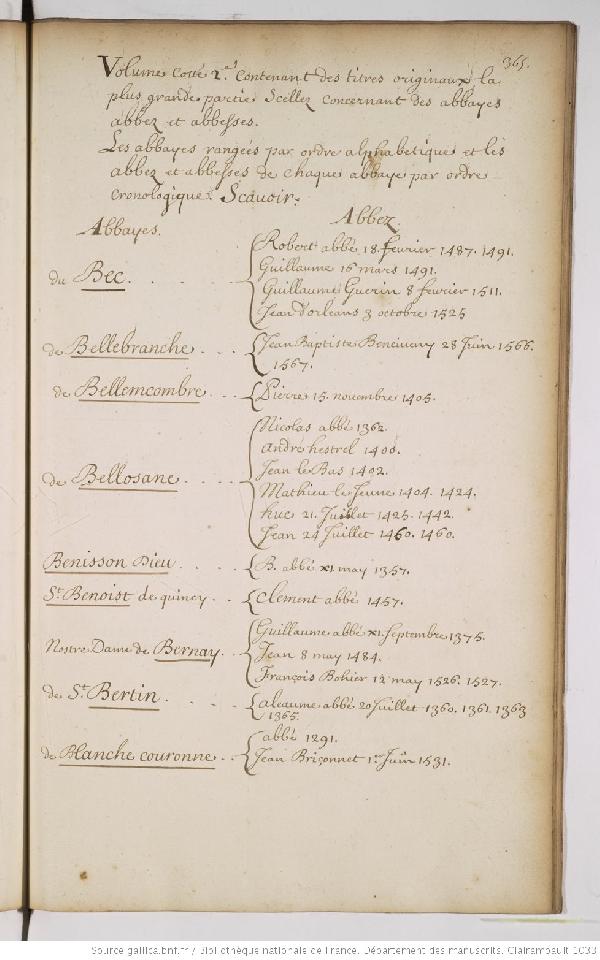 365.
Volume cotté 2.d Contenant des titres originaux la
plus grande partie Scellez concernant des abbayes
abbez et abbesses.
Les abbayes rangées par ordre alphabetique et les
abbez et abbesses de chaque abbaye par ordre
cronologique. Scauoir.
Abbayes. Abbez.
du Bec. Robert abbé 18. fevrier 1487. 1491.
Guillaume 16 mars 1491.
Guillaume Guerin 8 fevrier 1511.
Jean d'orleans 3 octobre 1525
de Bellebranche Jean Baptiste Benciuany 28 Juin 1566.
1567.
de Bellemcombre Pierre 15. novembre 1405.
de Bellosane Nicolas abbé 1362.
André hestrel 1400.
Jean le Bas 1402.
Mathieu le Jeune 1404. 1424.
hue 21. Juillet 1425. 1442.
Jean 24 Juillet 1460. 1460.
Benisson Dieu B. abbé xi may 1357.
St. Benoist de quincy Clement abbé 1457.
Nostre Dame de Bernay Guillaume abbé xi. Septembre 1375.
Jean 8 may 1484.
François Bohier 12 may 1526. 1527.
de St. Bertin aleaume abbé 20 Juillet 1360. 1361. 1363
1365.
de Blanche couronne abbé 1291.
Jean Briçonnet 1.er Juin 1531.
Source gallica.bnf.fr / Bibliothèque nationale de France. Département des manuscrits. Clairambault 1033